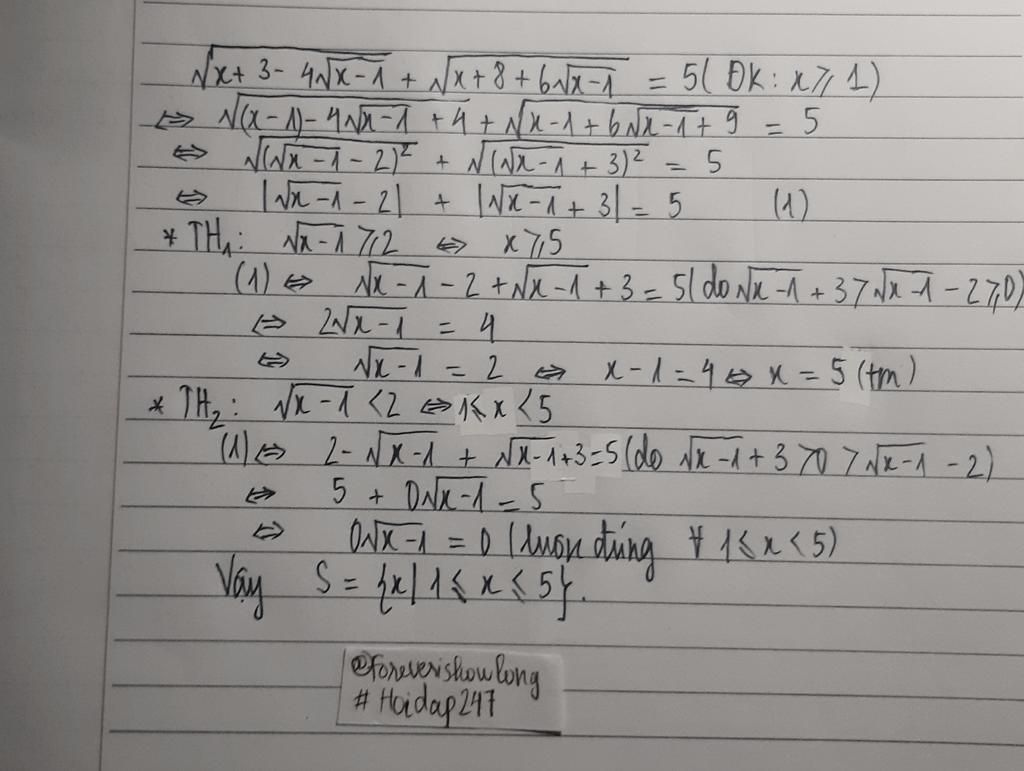 √(x + 3 - 4√(x-1)) + √(x + 8 + 6√(x-1)) = 5 ( ĐK: x ⩾ 1)
⇔ √((x-1) - 4√(x-1) + 4) + √(x-1 + 6√(x-1) + 9) = 5
⇔ √((√(x-1) - 2)²) + √((√(x-1) + 3)²) = 5
⇔ |√(x-1) - 2| + |√(x-1) + 3| = 5 (1)
* TH₁: √(x-1) ⩾ 2 ⇔ x ⩾ 5
(1) ⇔ √(x-1) - 2 + √(x-1) + 3 = 5 (do √(x-1) + 3 > √(x-1) - 2 ⩾ 0)
⇔ 2√(x-1) = 4
⇔ √(x-1) = 2 ⇔ x - 1 = 4 ⇔ x = 5 (tm)
* TH₂: √(x-1) < 2 ⇔ 1 ⩽ x < 5
(1) ⇔ 2 - √(x-1) + √(x-1) + 3 = 5 (do √(x-1) + 3 > 0 > √(x-1) - 2)
⇔ 5 + 0√(x-1) = 5
⇔ 0√(x-1) = 0 (luôn đúng ∀ 1 ⩽ x < 5)
Vậy S = {x | 1 ⩽ x ⩽ 5}.
@foreverishowlong
# Hoidap247